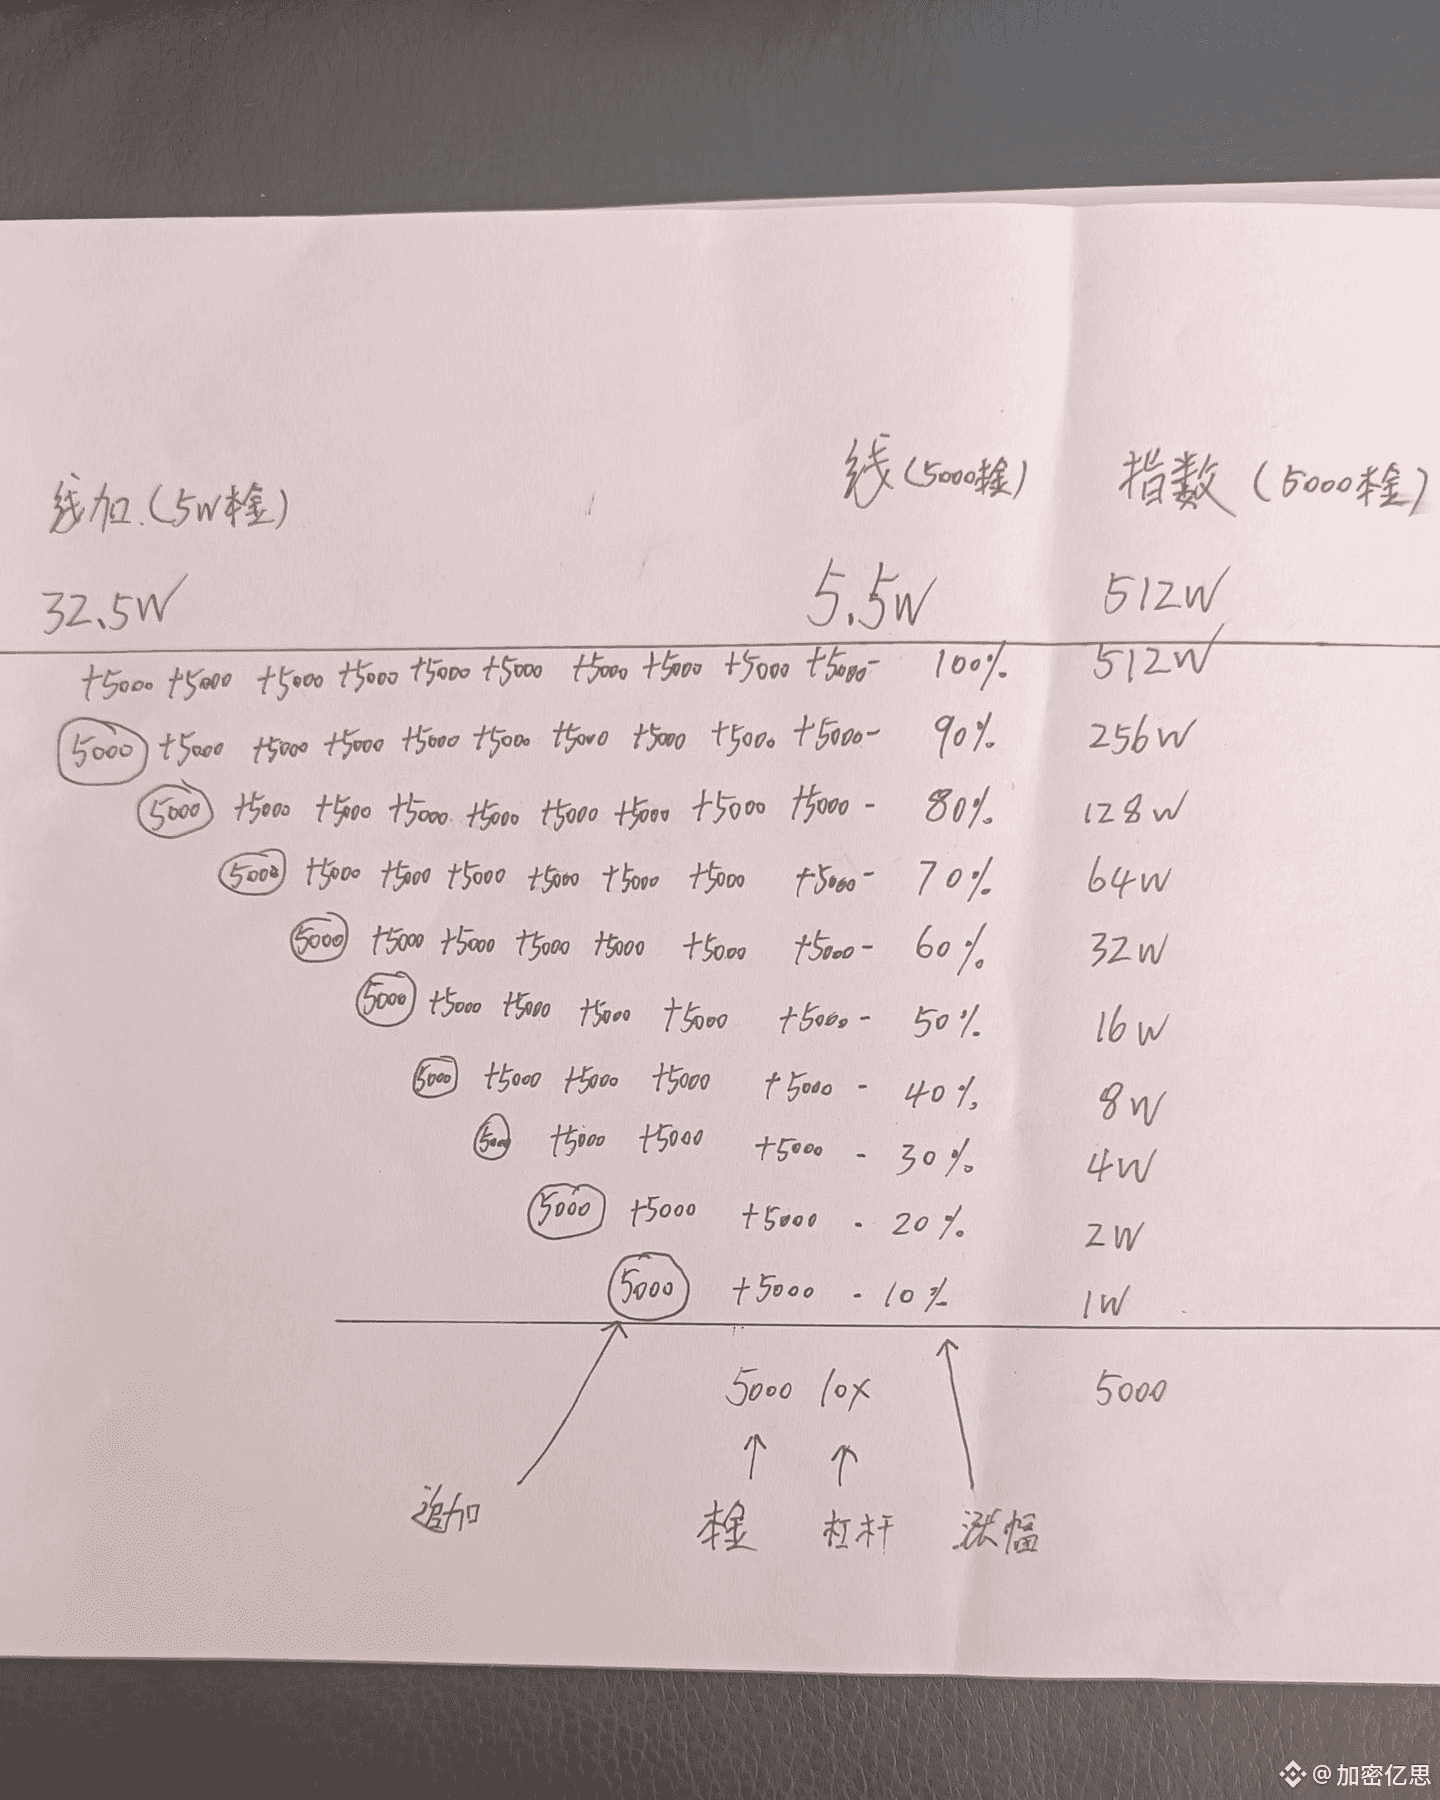 线加.(5W本金)
线(5000本金)
指数(5000本金)
32.5W
5.5W
512W
+5000 +5000 +5000 +5000 +5000 +5000 +5000 +5000 +5000 +5000- 100% 512W
5000 +5000 +5000 +5000 +5000 +5000 +5000 +5000 +5000 +5000- 90% 256W
5000 +5000 +5000 +5000 +5000 +5000 +5000 +5000 +5000 - 80% 128W
5000 +5000 +5000 +5000 +5000 +5000 +5000 +5000- 70% 64W
5000 +5000 +5000 +5000 +5000 +5000 +5000- 60% 32W
5000 +5000 +5000 +5000 +5000 +5000 - 50% 16W
5000 +5000 +5000 +5000 +5000 - 40% 8W
5000 +5000 +5000 +5000 - 30% 4W
5000 +5000 +5000 - 20% 2W
5000 +5000 - 10% 1W
5000 10X 5000
追加 本金 杠杆 涨幅
@加密亿思